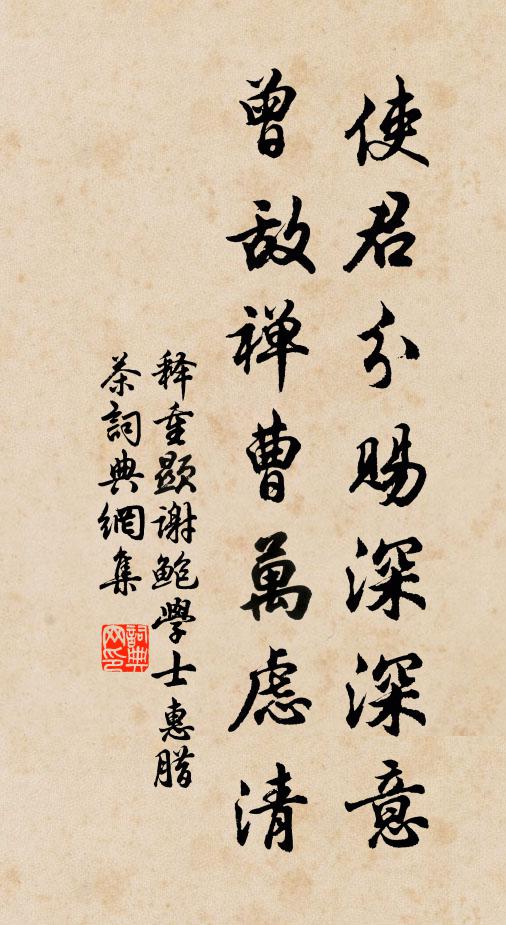 使君分賜深深意
曾敌禅曹萬慮清
释重顯谢鲍學士惠腊
茶詞典網集
詞典
网印